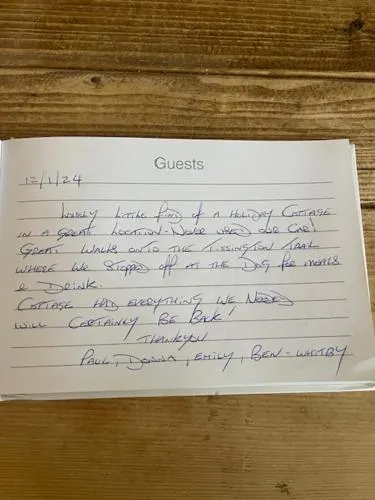 Guests
12/1/24
Lovely Little find of a Holiday Cottage
in a great location - Never used our car!
Great walks onto the Tissington Trail
where we stopped off at the Dog for meals
& Drink.
Cottage had everything we needed
will certainly be back
Thankyou
Paul, Donna, Emily, Ben - Whitby